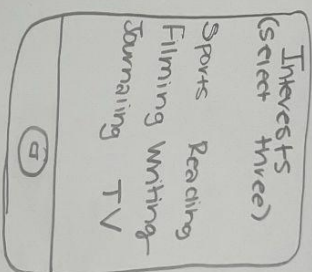 Interests
(select three)
Sports Reading
Filming Writing
Journaling TV